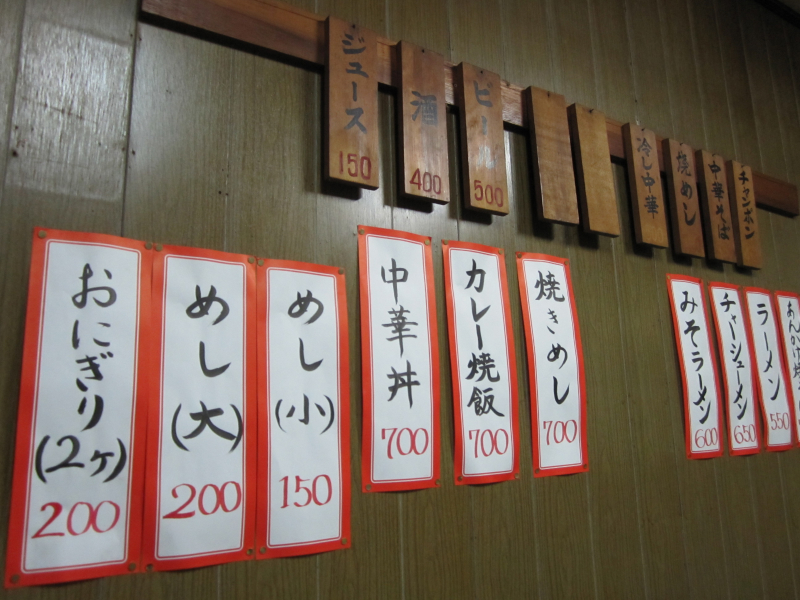 ジュース
150
酒
400
ビール
500
冷し中華
焼めし
中華そば
チャンポン
おにぎり
(2ヶ)
200
めし
(大)
200
めし
(小)
150
中華丼
700
カレー焼飯
700
焼きめし
700
みそラーメン
600
チャーシューメン
650
ラーメン
550
あんかけ焼